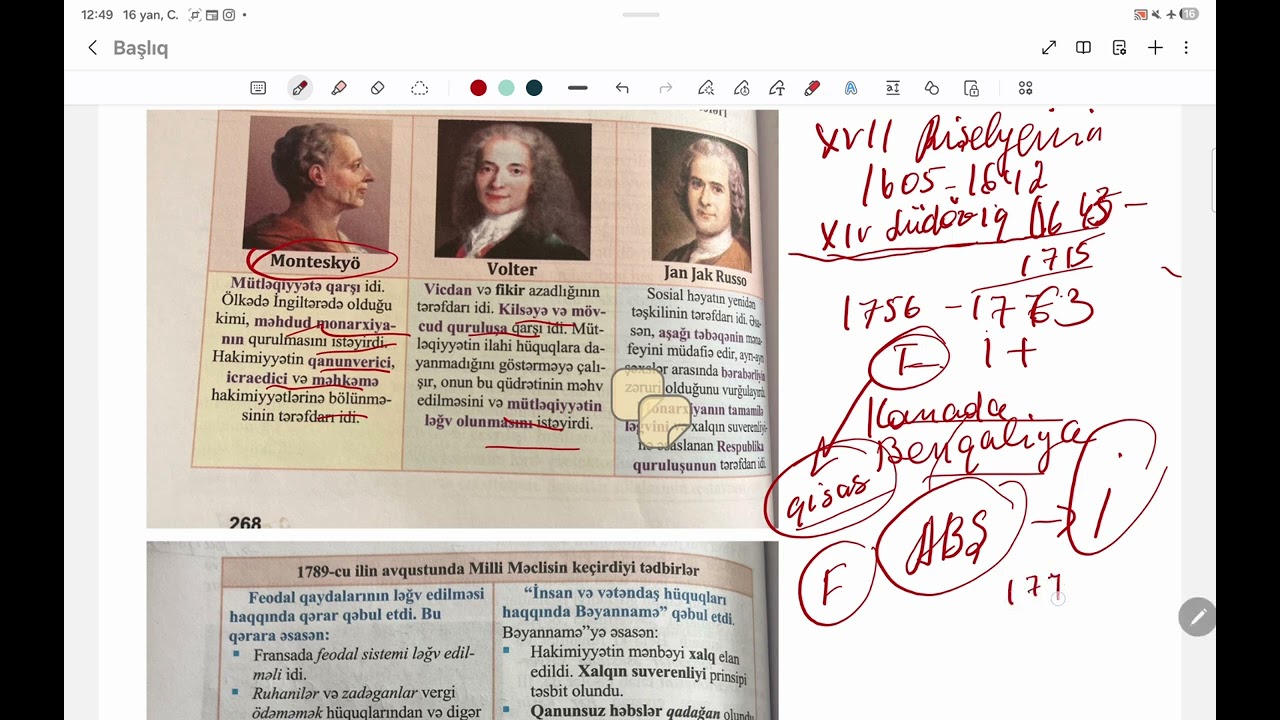 12:49 16 yan, C.
16
Başlıq
Monteskyö
Mütləqiyyətə qarşı idi.
Ölkədə İngiltərədə olduğu
kimi, məhdud monarxiya-
nın qurulmasını istəyirdi.
Hakimiyyətin qanunverici,
icraedici və məhkəmə
hakimiyyətlərinə bölünmə-
sinin tərəfdarı idi.
Volter
Vicdan və fikir azadlığının
tərəfdarı idi. Kilsəyə və möv-
cud quruluşa qarşı idi. Müt-
ləqiyyətin ilahi hüquqlara da-
yanmadığını göstərməyə çalı-
şır, onun bu qüdrətinin məhv
edilməsini və mütləqiyyətin
ləğv olunmasını istəyirdi.
Jan Jak Russo
Sosial həyatın yenidən
təşkilinin tərəfdarı idi. Əsa-
sən, aşağı təbəqənin məna-
feyini müdafiə edir, ayrı-ayrı
şəxslər arasında bərabərliyin
zəruri olduğunu vurğulayırdı.
Monarxiyanın tamamilə
ləğvini xalqın suverenliyi-
nə əsaslanan Respublika
quruluşunun tərəfdarı idi.
268
1789-cu ilin avqustunda Milli Məclisin keçirdiyi tədbirlər
Feodal qaydalarının ləğv edilməsi
haqqında qərar qəbul etdi. Bu
qərara əsasən:
▪ Fransada feodal sistemi ləğv edil-
məli idi.
▪ Ruhanilər və zadəganlar vergi
ödəməmək hüquqlarından və digər
“İnsan və vətəndaş hüquqları
haqqında Bəyannamə” qəbul etdi.
Bəyannamə”yə əsasən:
▪ Hakimiyyətin mənbəyi xalq elan
edildi. Xalqın suverenliyi prinsipi
təsbit olundu.
▪ Qanunsuz həbslər qadağan olundu
XVII Rişelyenin
1605-1642
XIV Lüdoviq 1643-
1715
1756 - 1763
F İ +
Kanada
Benqaliya
qisas
ABŞ → İ
F
177